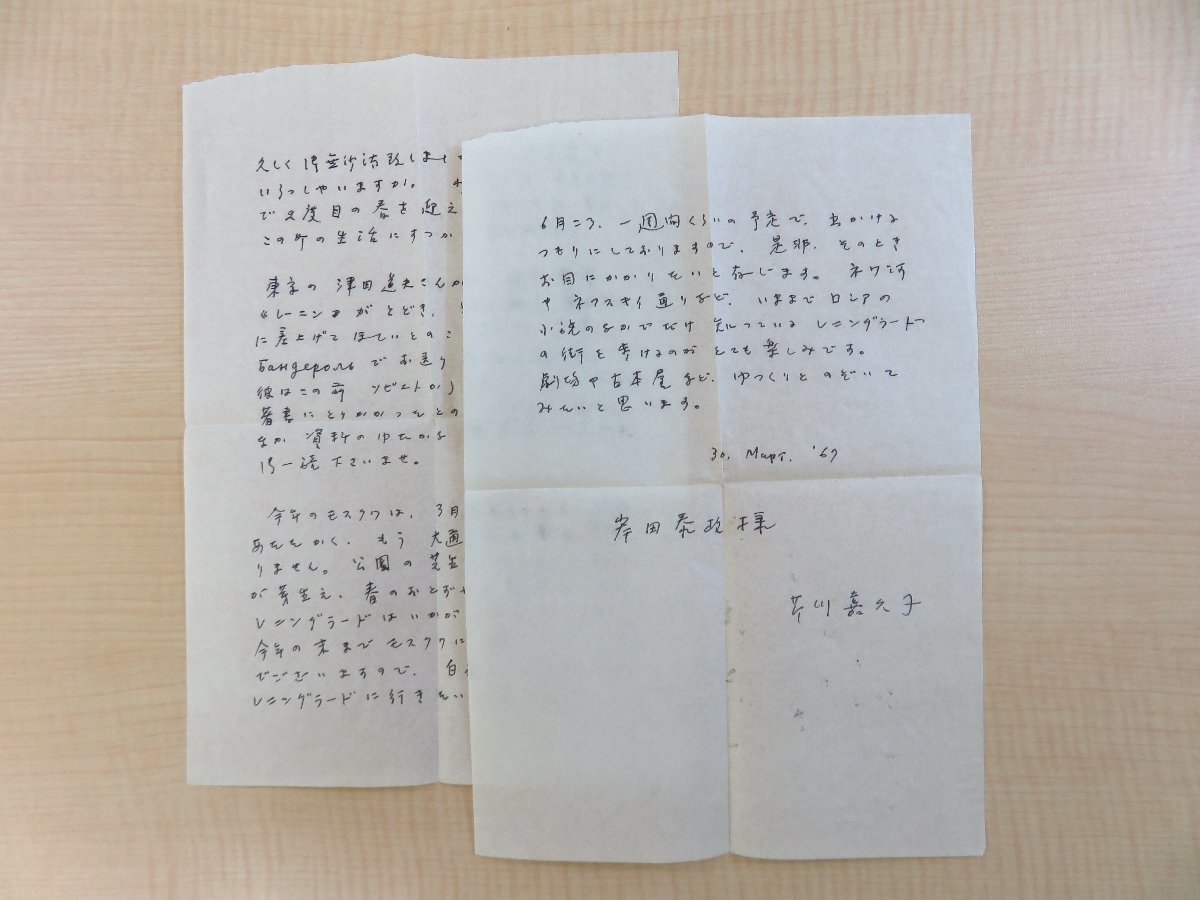 久しく御無沙汰致しました
いらっしゃいますか。
で2度目の春を迎え
この町の生活にすっか
東京の 津田道夫さんか
《レーニン》がとどき、
に差上げて ほしいとのこ
Бандероль でお送り
彼はこの前 ソビエトから
著書にとりかかったとの
資料のゆたかな
御一読下さいませ。
今年のモスクワは、3月
あたたかく、もう 大通
りません。公園の 芝生
が芽生え、春のおとずれ
レニングラードはいかが
今年の末までモスクワに
でございますので、 自
レニングラードに行きたい
6月ころ、一週間くらいの予定で、出かける
つもりにしておりますので、是非、そのとき
お目にかかりたいと存じます。ネワ河
や ネフスキイ通りなど、いままでロシアの
小説のなかでだけ 知っている レニングラード
の街を歩けるのがとても楽しみです。
劇場や古本屋など、ゆっくりとのぞいて
みたいと思います。
30. Март. '67
岸田泰政様
芹川嘉久子